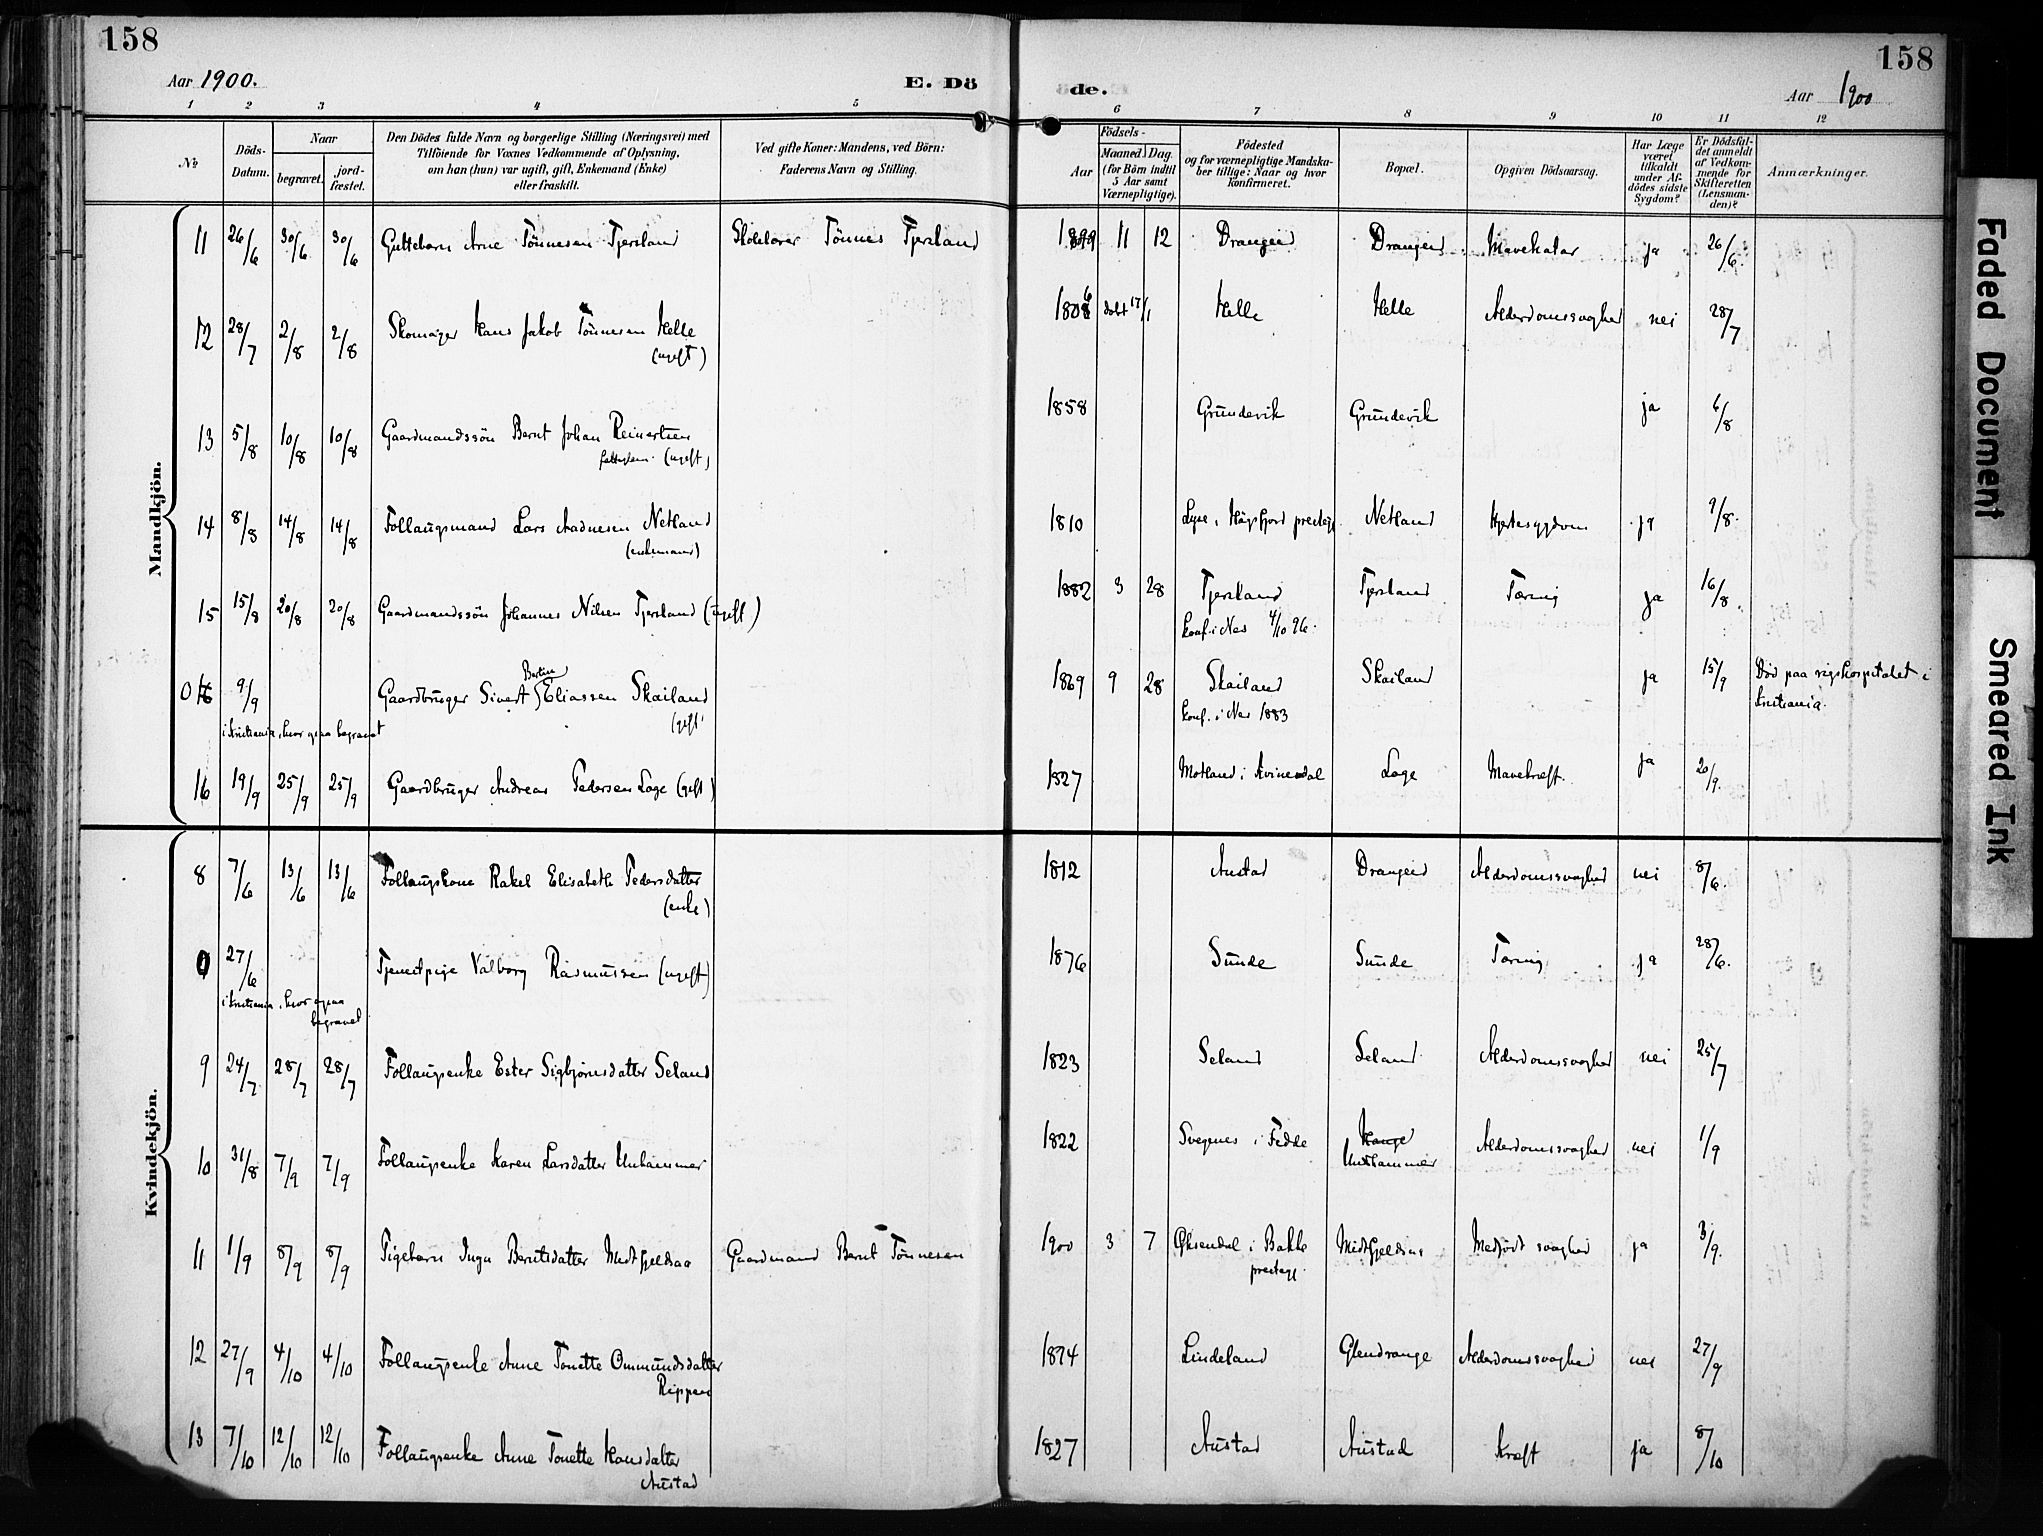 158
158
Aar 1900.
E. Dö
de.
Aar 1900
1 2 3 4 5 6 7 8 9 10 11 12
No
Döds-
Datum.
Naar
begravet.
jord-
fæstet.
Den Dödes fulde Navn og borgerlige Stilling (Næringsvei) med
Tilföiende for Voxnes Vedkommende af Oplysning,
om han (hun) var ugift, gift, Enkemand (Enke)
eller fraskilt.
Ved gifte Koner: Mandens, ved Börn:
Faderens Navn og Stilling.
Födsels-
Aar
Maaned Dag
(for Börn indtil
5 Aar samt
Værnepligtige).
Födested
og for værnepligtige Mandska-
ber tillige: Naar og hvor
konfirmeret.
Bopæl.
Opgiven Dödsaarsag.
Har Læge
været
tilkaldt
under Af-
dödes sidste
Sygdom?
Er Dödsfal-
det anmeldt
af Vedkom-
mende for
Skifteretten
(Lensman-
den)?
Anmærkninger.
Mandkjön.
11 26/6 30/6 30/6 Guttebarn Arne Tönnesen Tjersland Tönnes Tjersland 1899 11 12 Drangeid Drangeid Mavekatar ja 26/6.
12 28/7 2/8 2/8 Skomager Hans Jakob Tönnesen Helle
(ugift)
1806 døbt 17/1 Helle Helle Alderdomssvaghed nei 28/7
13 5/8 10/8 10/8 Gaardmandssön Bernt Johan Reinertsen
(ugift)
1858 Grundevik Grundevik ja 6/8
14 8/8 14/8 14/8 Follaugsmand Lars Aadnesen Netland
(enkemand)
1810 Lyse i Høgsfjord prestegj. Netland Hjertesygdom ja 9/8.
15 15/8 20/8 20/8 Gaardmandssön Johannes Nilsen Tjersland (ugift)
1882 3 28 Tjersland Tjersland Tæring ja 16/8
konf. i Nes 4/10 96.
0 16 9/9 Gaardbruger Sivert Bertin Eliassen Skailand
(gift)
i Kristiania, hvor ogsaa begravet
1869 9 28 Skailand Skailand ja 15/9 Død paa rigshospitalet i
Kristiania.
konf. i Nes 1883
16 19/9 25/9 25/9 Gaardbruger Andreas Pedersen Loge (gift)
1827 Motland i Kvinesdal Loge Mavekræft. ja 20/9.
Kvindekjön.
8 7/6 13/6 13/6 Follaugskone Rakel Elisabeth Pedersdatter
(enke)
1812 Austad Drangeid Alderdomssvaghed nei 8/6.
0 27/6 Tjenestpige Valborg Rasmussen (ugift)
i Kristiania, hvor ogsaa
begravet
1876 Sunde Sunde Tæring ja 28/6.
9 24/7 28/7 28/7 Follaugsenke Ester Sigbjørnsdatter Seland
1823 Seland Seland Alderdomssvaghed nei 25/7
10 31/8 7/9 7/9 Follaugsenke Karen Larsdatter Unhammer
1822 Svegenes i Fedde Hauge
Unhammer Alderdomssvaghed nei 1/9
11 1/9 8/9 8/9 Pigebarn Inga Berntsdatter Midtfjeldsaa Gaardmand Bernt Tönnesen
1900 3 7 Øksendal i Bakke
prestegj. Midtfjeldsaa Medfødt svaghed ja 3/9.
12 27/9 4/10 4/10 Follaugsenke Anne Tonette Ommundsdatter
Rippen
1814 Lindeland Glendrange Alderdomssvaghed nei 27/9
13 7/10 12/10 12/10 Follaugsenke Anne Tonette Hansdatter
Austad
1827 Austad Austad Kræft ja 8/10
Faded Document
Smeared Ink